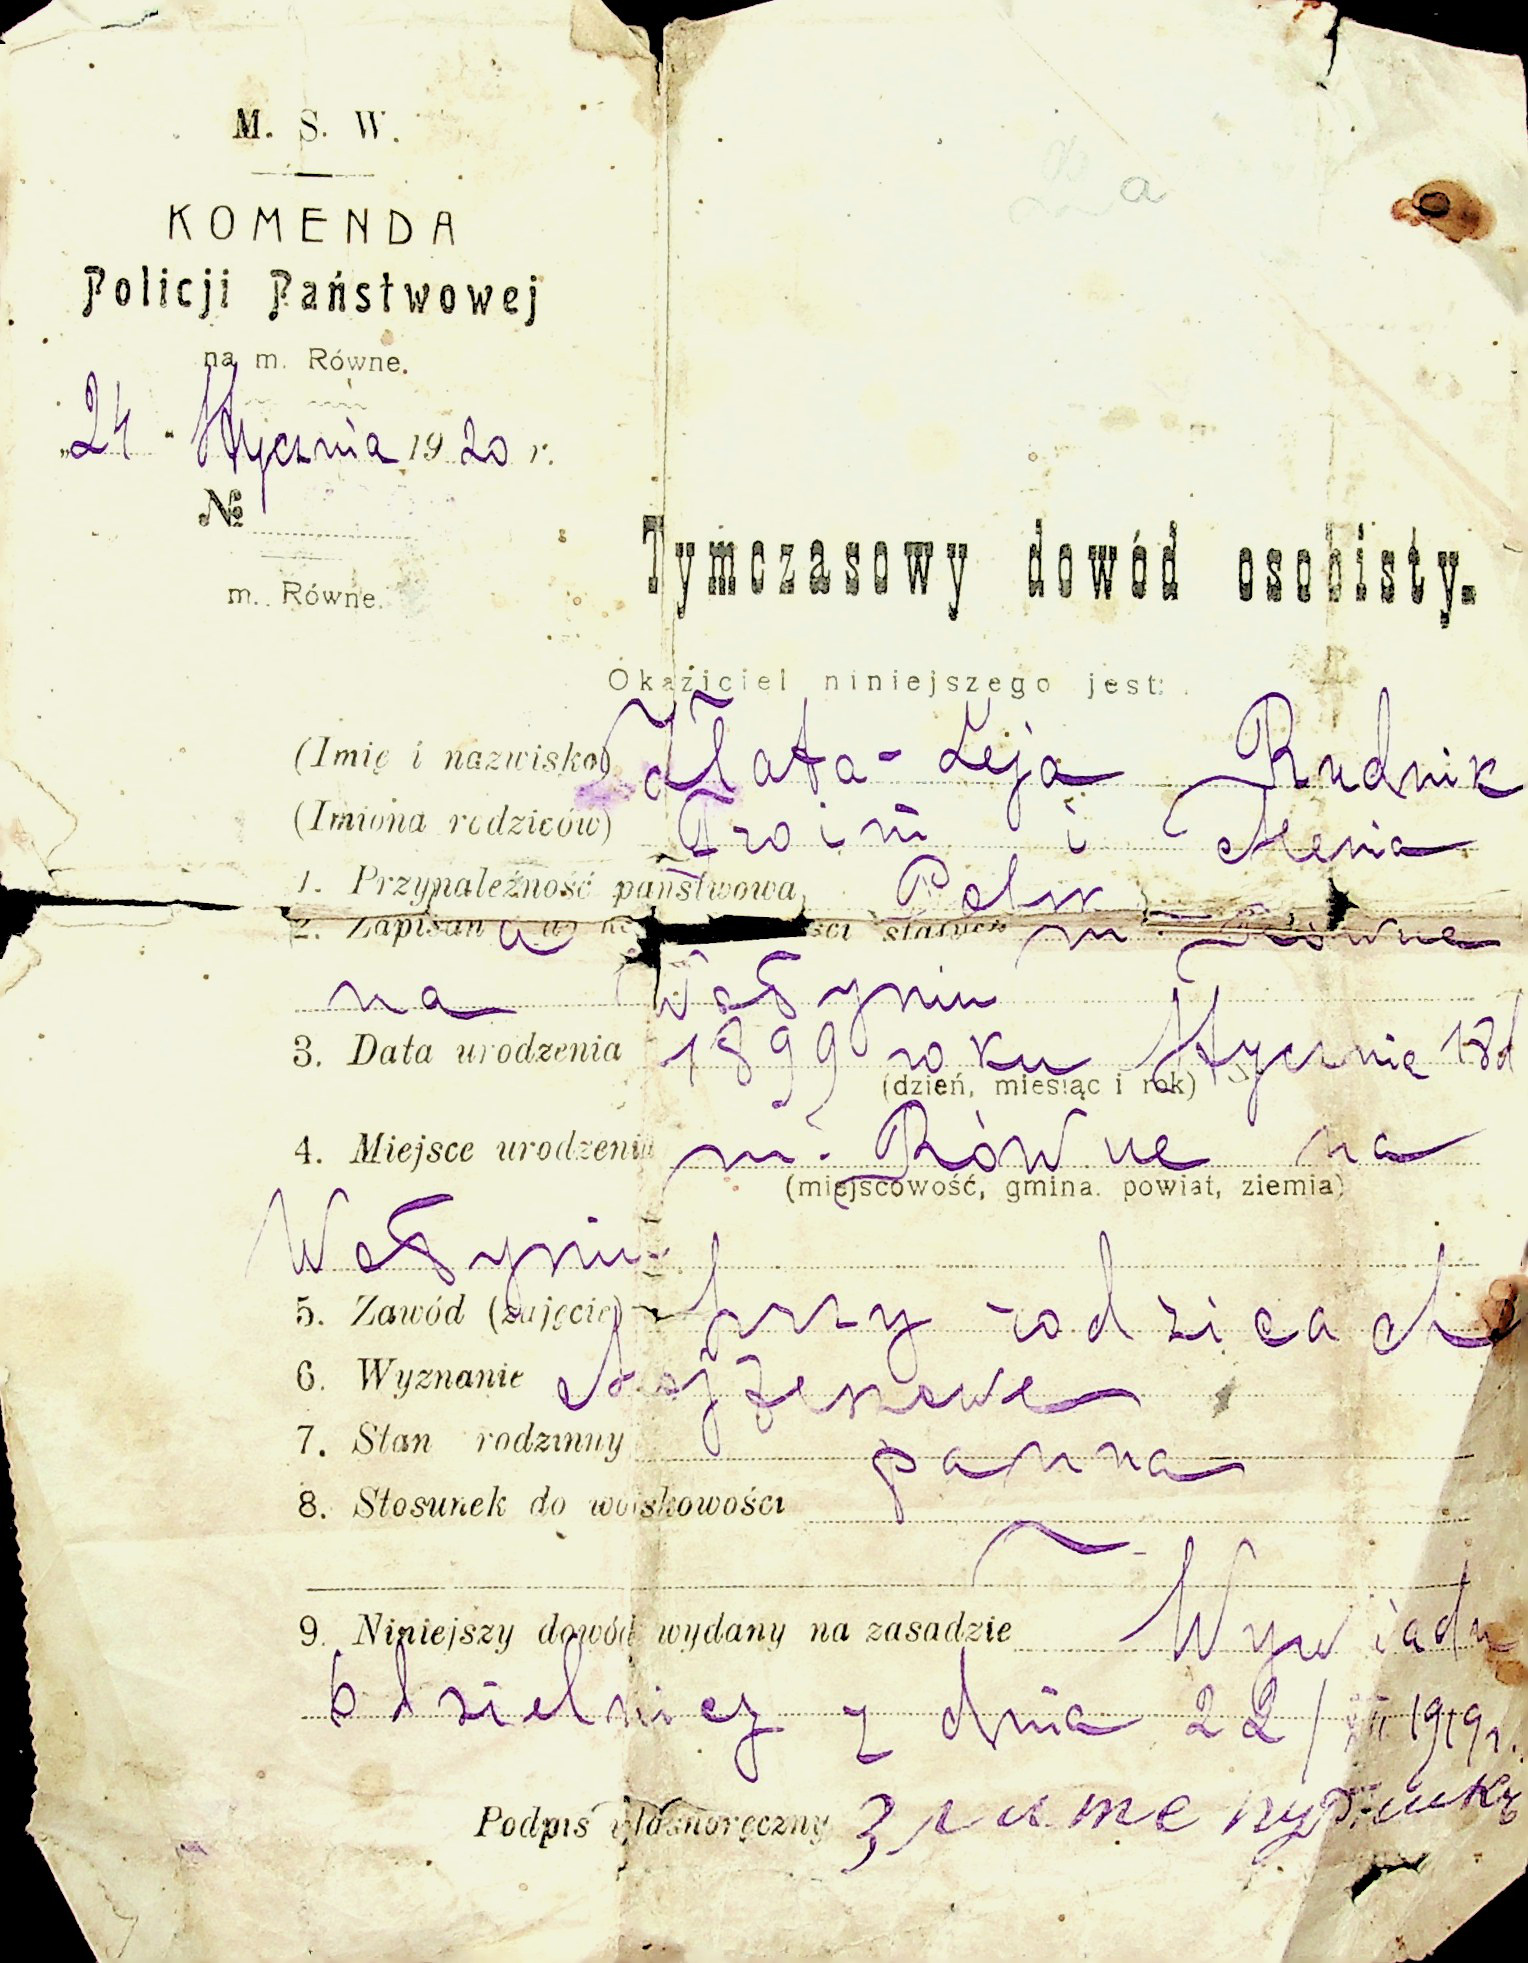 M. S. W.
KOMENDA
Policji Państwowej
na m. Równe.
„24 " Stycznia 1920 r.
№
m. Równe.
Tymczasowy dowód osobisty.
Okaziciel niniejszego jest:
(Imię i nazwisko) Złata-Leja Rudnik
(Imiona rodziców) Froim i Menia
1. Przynależność państwowa, Polsk
2. Zapisana m. Równe
na Wołyniu
3. Data urodzenia 1899 roku Stycznia 18d
(dzień, miesiąc i rok)
4. Miejsce urodzenia m. Równe na
(miejscowość, gmina. powiat, ziemia)
Wołyniu
5. Zawód (zajęcie) przy rodzicach
6. Wyznanie Mojżeszowe
7. Stan rodzinny panna
8. Stosunek do wojskowości
9. Niniejszy dowód wydany na zasadzie Wywiadu
dzielnicy z dnia 22/XII 1919 r.
Podpis własnoręczny